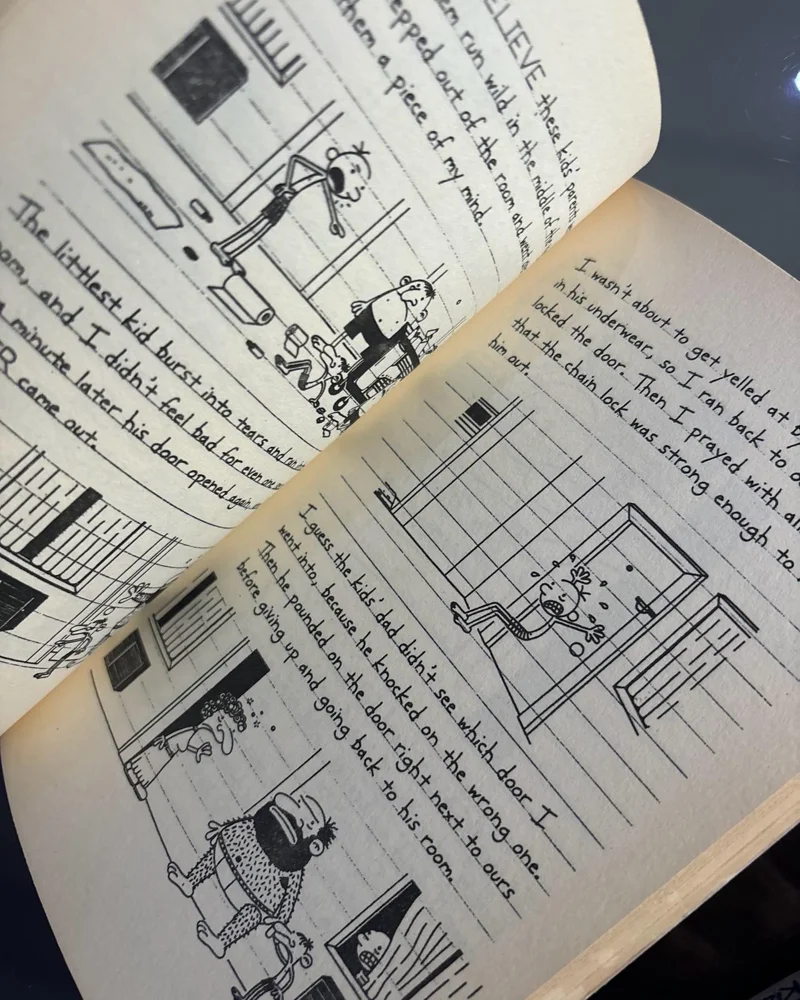 BELIEVE these kids' parents
run wild in the middle of the
stepped out of the room and went
them a piece of my mind.
The littlest kid burst into tears and ran
room, and I didn't feel bad for even one
a minute later his door opened again,
came out.
I wasn't about to get yelled at by
in his underwear, so I ran back to
locked the door. Then I prayed with
that the chain lock was strong enough to
him out.
I guess the kids' dad didn't see which door I
went into, because he knocked on the wrong one.
Then he pounded on the door right next to ours
before giving up and going back to his room.